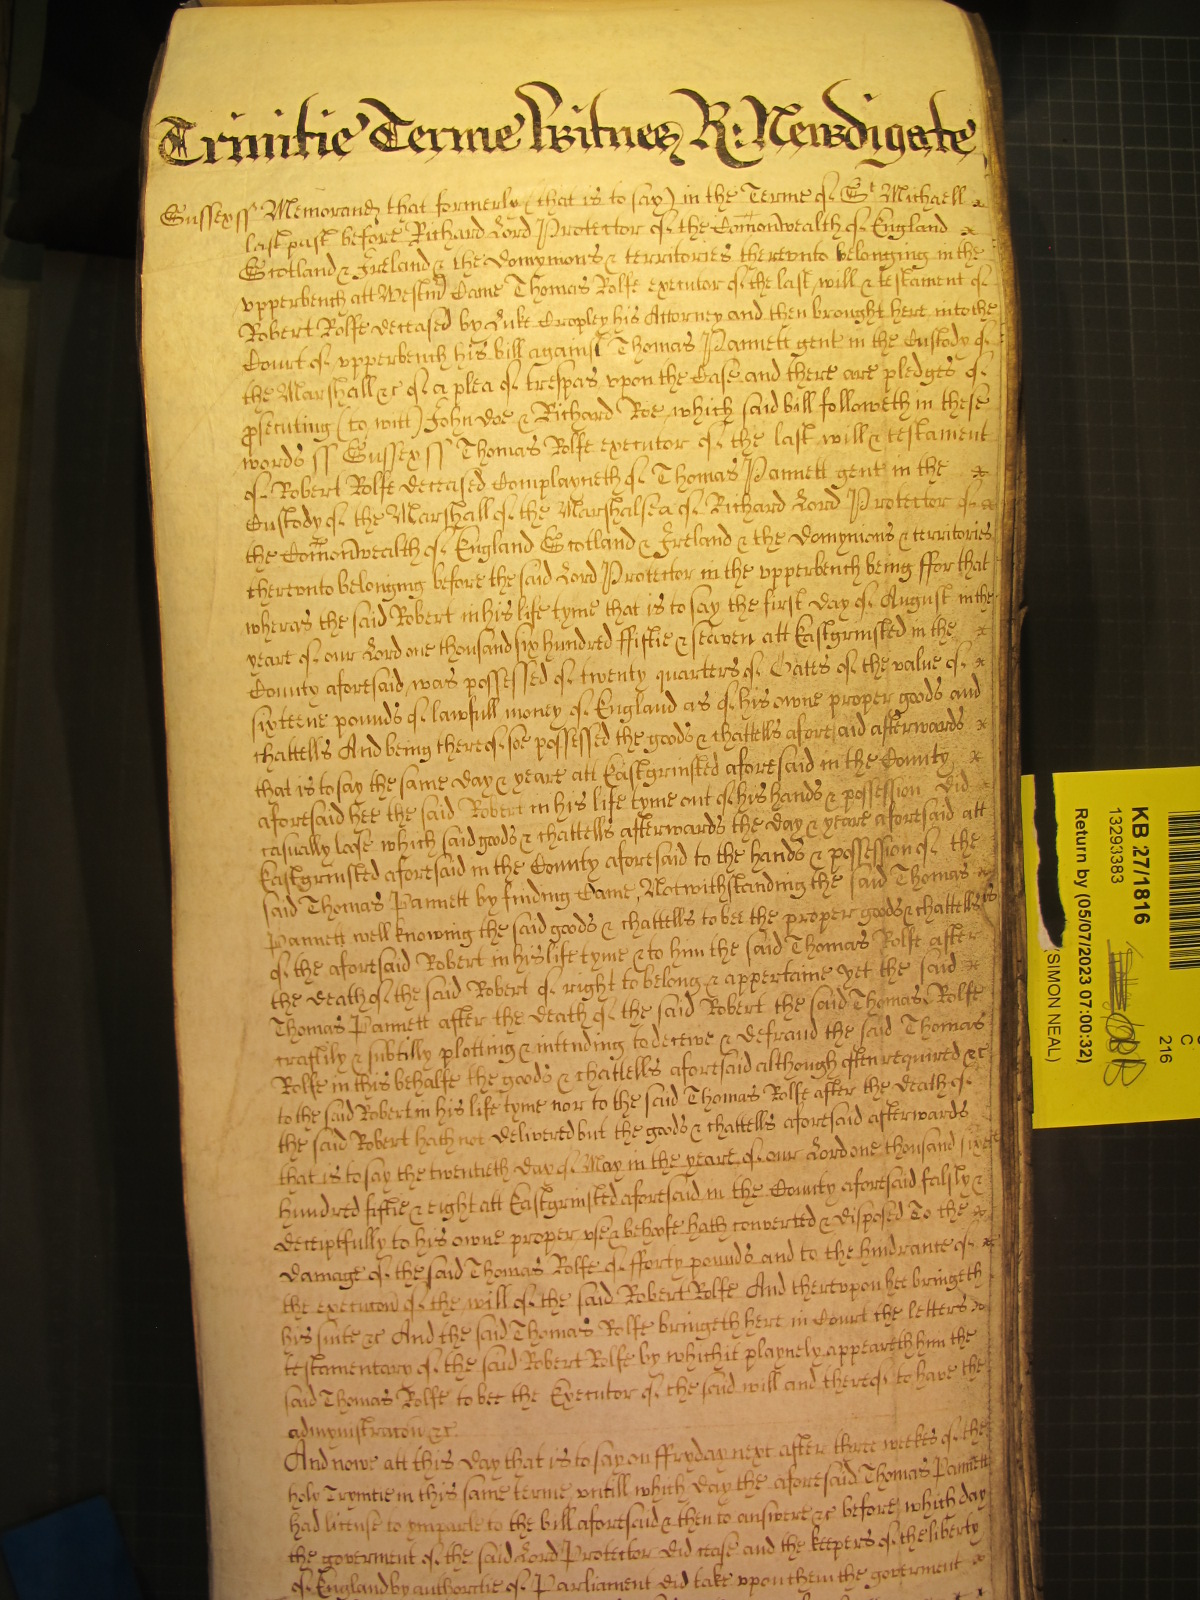 Trinitie Terme Witnes R: Newdigate
Sussex ss Memorand that formerly (that is to say) in the Terme of St Michaell
last past before Richard Lord Protector of the Comonwealth of England
Scotland & Ireland & the Domynions & territories thereunto belonging in the
vpperbench att Westm Came Thomas Rolfe executor of the last will & testament of
Robert Rolfe deceased by Luke Cropley his Attorney and then brought here into the
Court of vpperbench his bill against Thomas Pannett gent in the Custody of
the Marshall &c of a plea of trespas vpon the Case and there are pledges of
prosecuting (to witt) John Doe & Richard Roe which said bill followeth in these
words ss Sussex ss Thomas Rolfe executor of the last will & testament
of Robert Rolfe deceased Complayneth of Thomas Pannett gent in the
Custody of the Marshall of the Marshalsea of Richard Lord Protector of
the Comonwealth of England Scotland & Ireland & the Domynions & territories
thereunto belonging before the said Lord Protector in the vpperbench being ffor that
wheras the said Robert in his life tyme that is to say the first day of August in the
yeare of our Lord one thousand six hundred ffiftie & seaven att Eastgrinsted in the
County aforesaid was possessed of twenty quarters of Oattes of the value of
sixteene pounds of lawfull money of England as of his owne proper goods and
chattells And being thereof soe possessed the goods & chattells aforesaid afterwards
that is to say the same day & yeare att Eastgrinsted aforesaid in the County
aforesaid hee the said Robert in his life tyme out of his hands & possession did
casually lose which said goods & chattells afterwards the day & yeare aforesaid att
Eastgrinsted aforesaid in the County aforesaid to the hands & possession of the
said Thomas Pannett by finding Came, Notwithstanding the said Thomas
Pannett well knowing the said goods & chattells to bee the proper goods & chattells
of the aforesaid Robert in his life tyme & to him the said Thomas Rolfe after
the death of the said Robert of right to belong & appertaine yet the said
Thomas Pannett after the death of the said Robert the said Thomas Rolfe
craftily & subtilly plotting & intending to deceive & defraud the said Thomas
Rolfe in this behalfe the goods & chattells aforesaid although often required &c
to the said Robert in his life tyme nor to the said Thomas Rolfe after the death of
the said Robert hath not delivered but the goods & chattells aforesaid afterwards
that is to say the twentieth day of May in the yeare of our Lord one thousand sixe
hundred fiftie & eight att Eastgrinsted aforesaid in the County aforesaid falsly &
deceiptfully to his owne proper vse & behoofe hath converted & disposed To the
damage of the said Thomas Rolfe of fforty pounds and to the hindrance of
the execucon of the will of the said Robert Rolfe And therevpon hee bringeth
his suite &c And the said Thomas Rolfe bringeth here in Court the letters
testamentary of the said Robert Rolfe by which it playnely appeareth him the
said Thomas Rolfe to bee the Executor of the said will and thereof to have the
admynistracon &c
And nowe att this day that is to say on ffryday next after three weekes of the
holy Trynitie in this same terme untill which day the aforesaid Thomas Pannett
had licence to ymparle to the bill aforesaid & then to answere &c before which day
the goverment of the said Lord Protector did cease and the keepers of the liberty
of England by authoritie of Parliament did take vpon them the goverment
KB 27/1816
13293383
Return by (05/07/2023 07:00:32)
(SIMON NEAL)
C
216